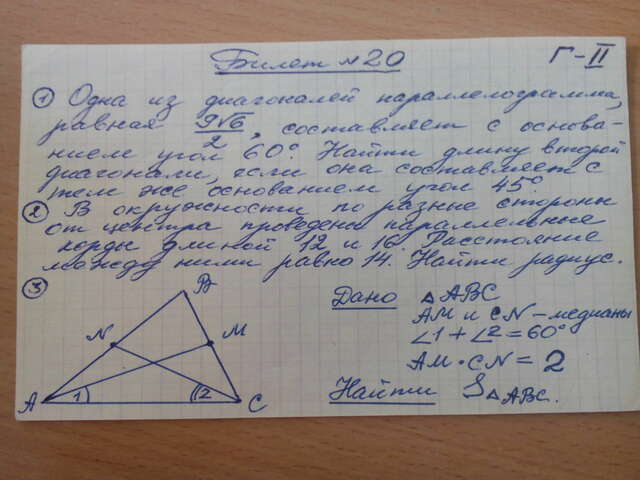 Билет №20
Г-II
① Одна из диагоналей параллелограмма,
равная 9√6/2, составляет с основа-
нием угол 60°. Найти длину второй
диагонали, если она составляет с
тем же основанием угол 45°.
② В окружности по разные стороны
от центра проведены параллельные
хорды длиной 12 и 16. Расстояние
между ними равно 14. Найти радиус.
③
B
N
M
A
1
2
C
Дано △ABC
AM и CN – медианы
∠1 + ∠2 = 60°
AM · CN = 2
Найти S△ABC.